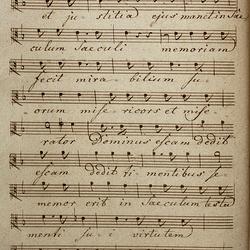 et ju- stitia ejus manet in Sae
culum Saeculi memoriam
fecit mira- bilium su-
orum mise- ricors et mise-
rator Dominus escam dedit
escam dedit ti- mentibus se
memor erit in Saeculum testa
menti su- i virtutem